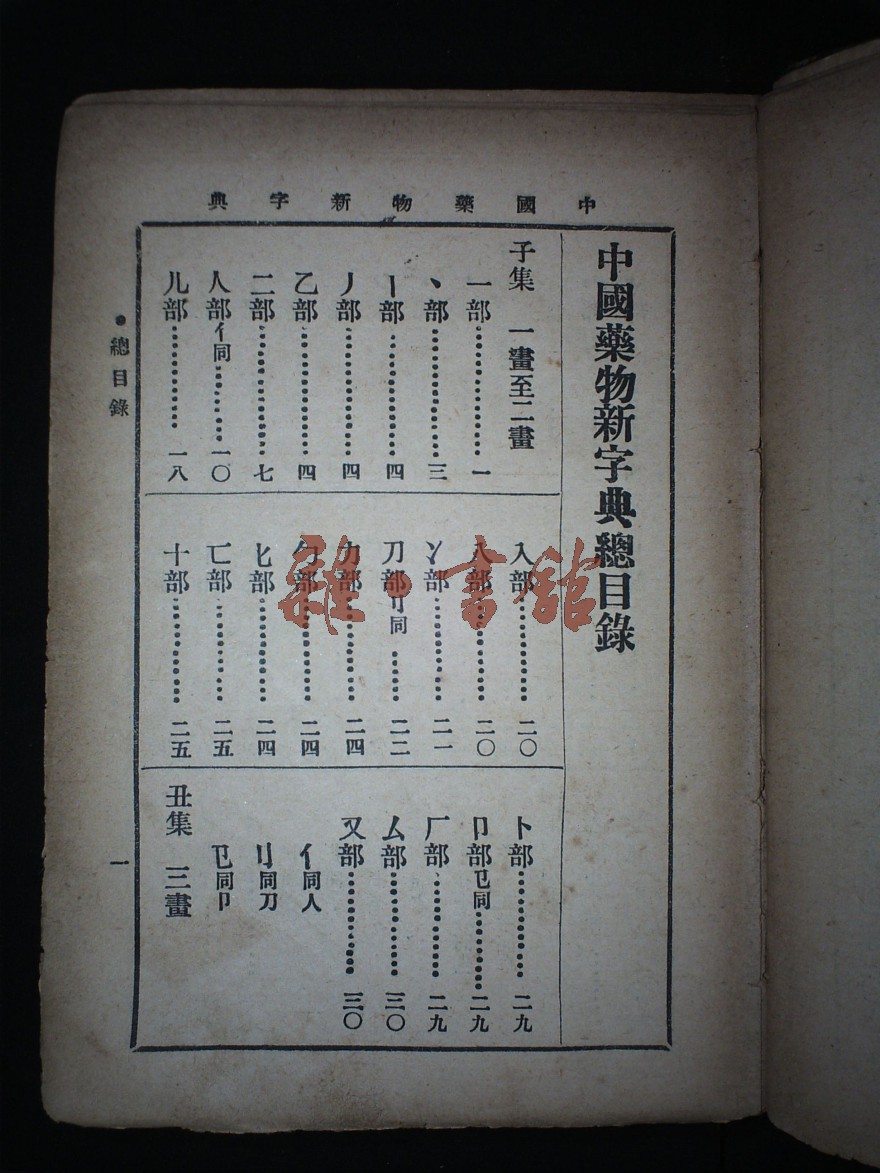 中國藥物新字典
中國藥物新字典總目錄
子集 一畫至二畫
一部…………一
丶部…………三
丨部…………四
丿部…………四
乙部…………四
二部…………七
人部亻同…………一〇
儿部…………一八
入部…………二〇
八部…………二〇
丷部…………二一
刀部刂同……二二
力部…………二四
勹部…………二四
匕部…………二四
匸部…………二五
十部…………二五
卜部…………二九
卩部㔾同…………二九
厂部…………二九
厶部…………三〇
又部…………三〇
亻同人
刂同刀
㔾同卩
丑集 三畫
●總目錄
一
雜·書館